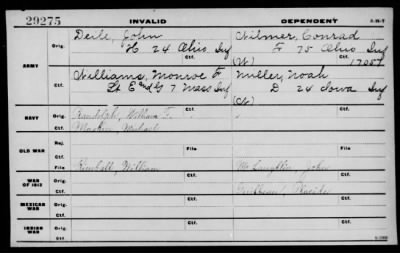 29275 INVALID DEPENDENT 3-14-7
ARMY
Orig. Deile, John Wilmer, Conrad
H. 24 Ohio Inf F 75 Ohio Inf
Ctf. (W)
Orig. Williams, Monroe F Miller, Noah
7 Mass Inf D. 24 Iowa Inf
Ctf.
NAVY
Orig. Randolph, William F.
Ctf.
OLD WAR
Rej.
Ctf. File File
WAR OF 1812
Orig. Kimball, William McLaughlin, John
Ctf. Ctf.
MEXICAN WAR
Orig.
Ctf. Ctf.
INDIAN WAR
Orig.
Ctf. Ctf.